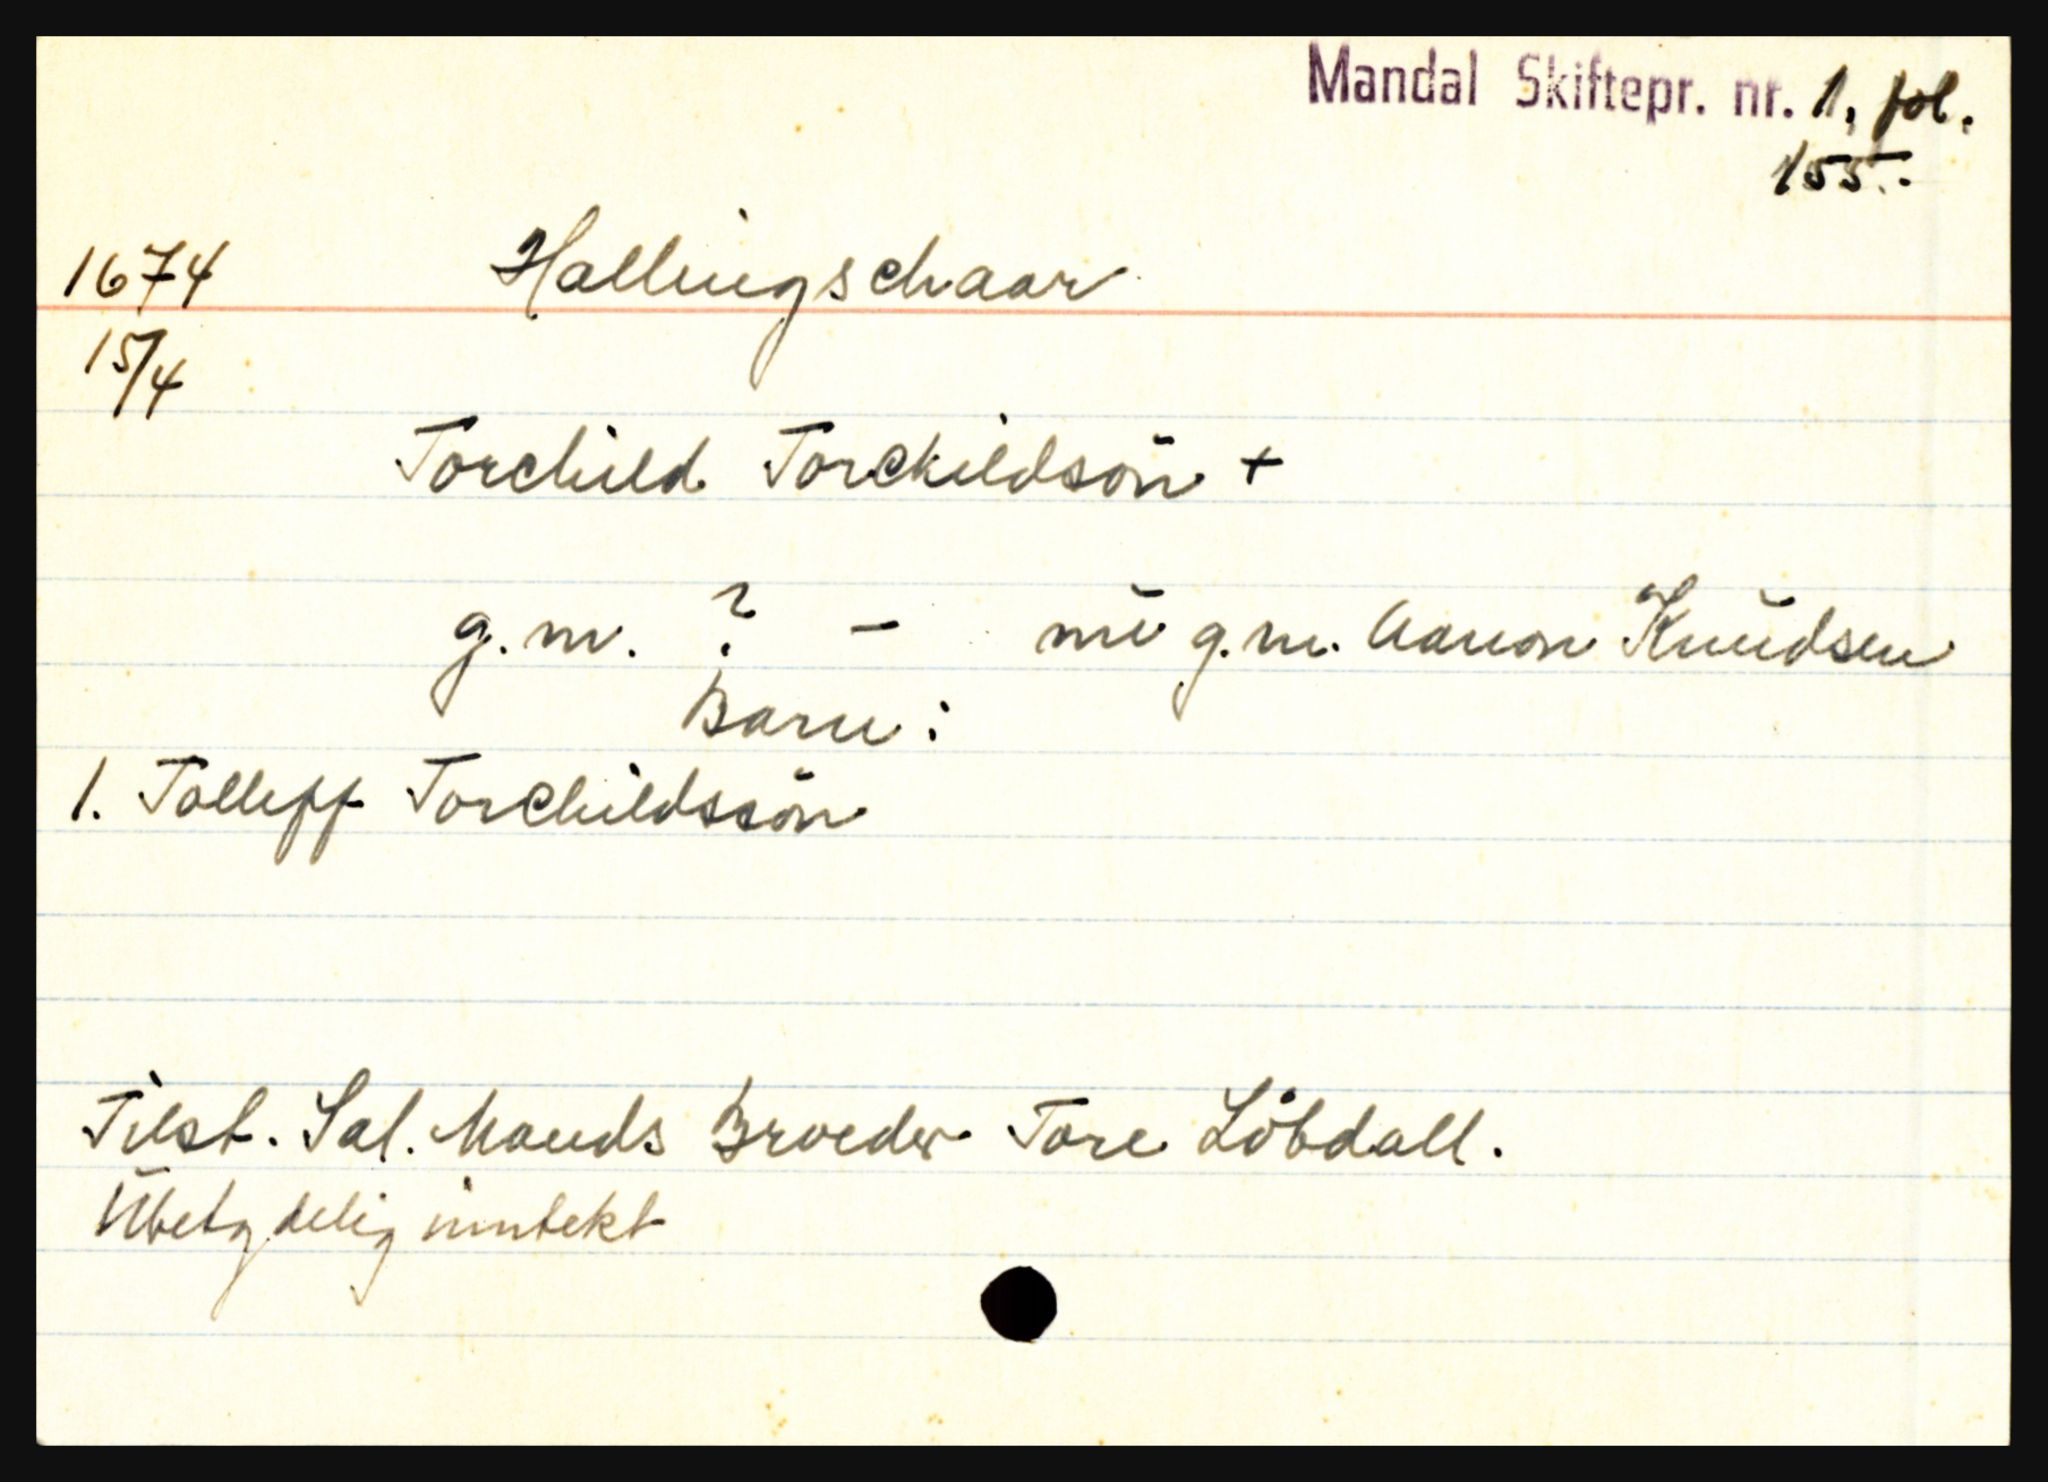 Mandal Skiftepr. nr. 1, fol.
155.-
1674 Hallingschaar
15/4
Torchild Torckildsön +
g.m. ? - nū g.m. Aanon Knūdsen
Barn:
1. Tolleff Torchildssön
Tilst. Sal. Mands Broeder Tore Löbdall.
Ūbetydelig inntekt